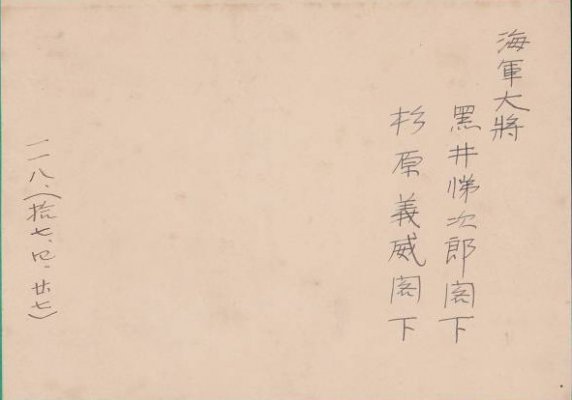 海軍大將
黒井悌次郎閣下
杉原義威閣下
一一八、（拾七、四、廿七）